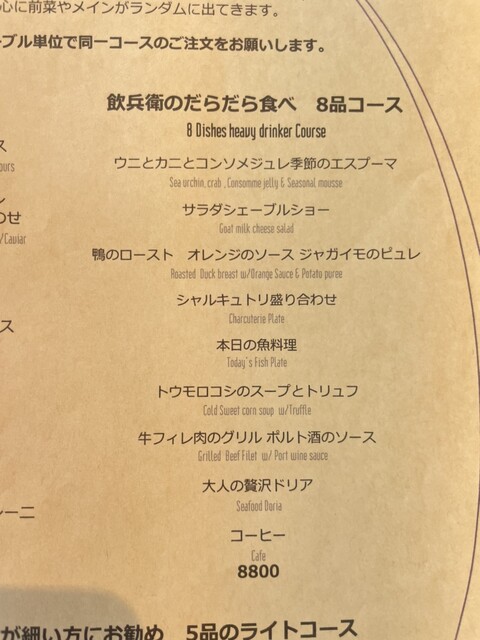 心に前菜やメインがランダムに出てきます。
ブル単位で同一コースのご注文をお願いします。
飲兵衛のだらだら食べ 8品コース
8 Dishes heavy drinker Course
ウニとカニとコンソメジュレ季節のエスプーマ
Sea urchin, crab , Consomme jelly & Seasonal mousse
サラダシェーブルショー
Goat milk cheese salad
鴨のロースト オレンジのソース ジャガイモのピュレ
Roasted Duck breast w/Orange Sauce & Potato puree
シャルキュトリ盛り合わせ
Charcuterie Plate
本日の魚料理
Today's Fish Plate
トウモロコシのスープとトリュフ
Cold Sweet corn soup w/Truffle
牛フィレ肉のグリル ポルト酒のソース
Grilled Beef Filet w/ Port wine sauce
大人の贅沢ドリア
Seafood Doria
コーヒー
Cafe
8800
が細い方にお勧め 5品のライトコース
ス
ours
のせ
/Caviar
ス
ーニ